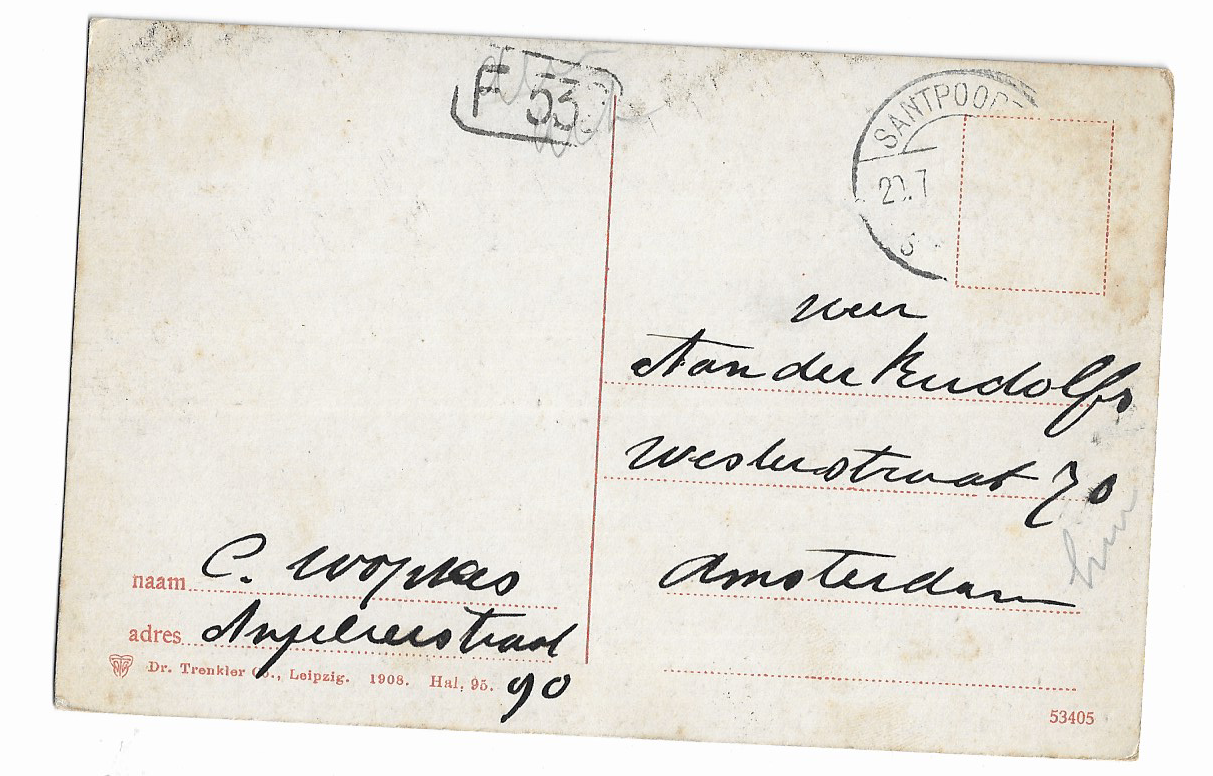 F 53
SANTPOORT
20.7
weer
Aan der Rudolfs
Westerstraat 70
Amsterdam
naam C. Wopkes
adres Anjelierstraat
90
Dr. Trenkler Co., Leipzig. 1908. Hal. 95.
53405